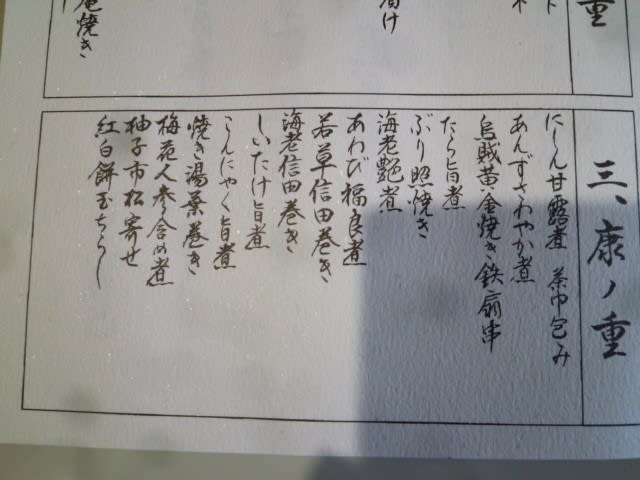 重
庵焼き
三、康ノ重
にしん甘露煮 茶巾包み
あんずさわやか煮
烏賊黄金焼き鉄扇串
たら旨煮
ぶり照焼き
海老艶煮
あわび福良煮
若草信田巻き
海老信田巻き
しいたけ旨煮
こんにゃく旨煮
焼き湯葉巻き
梅花人参含め煮
柚子市松寄せ
紅白餅玉ちらし